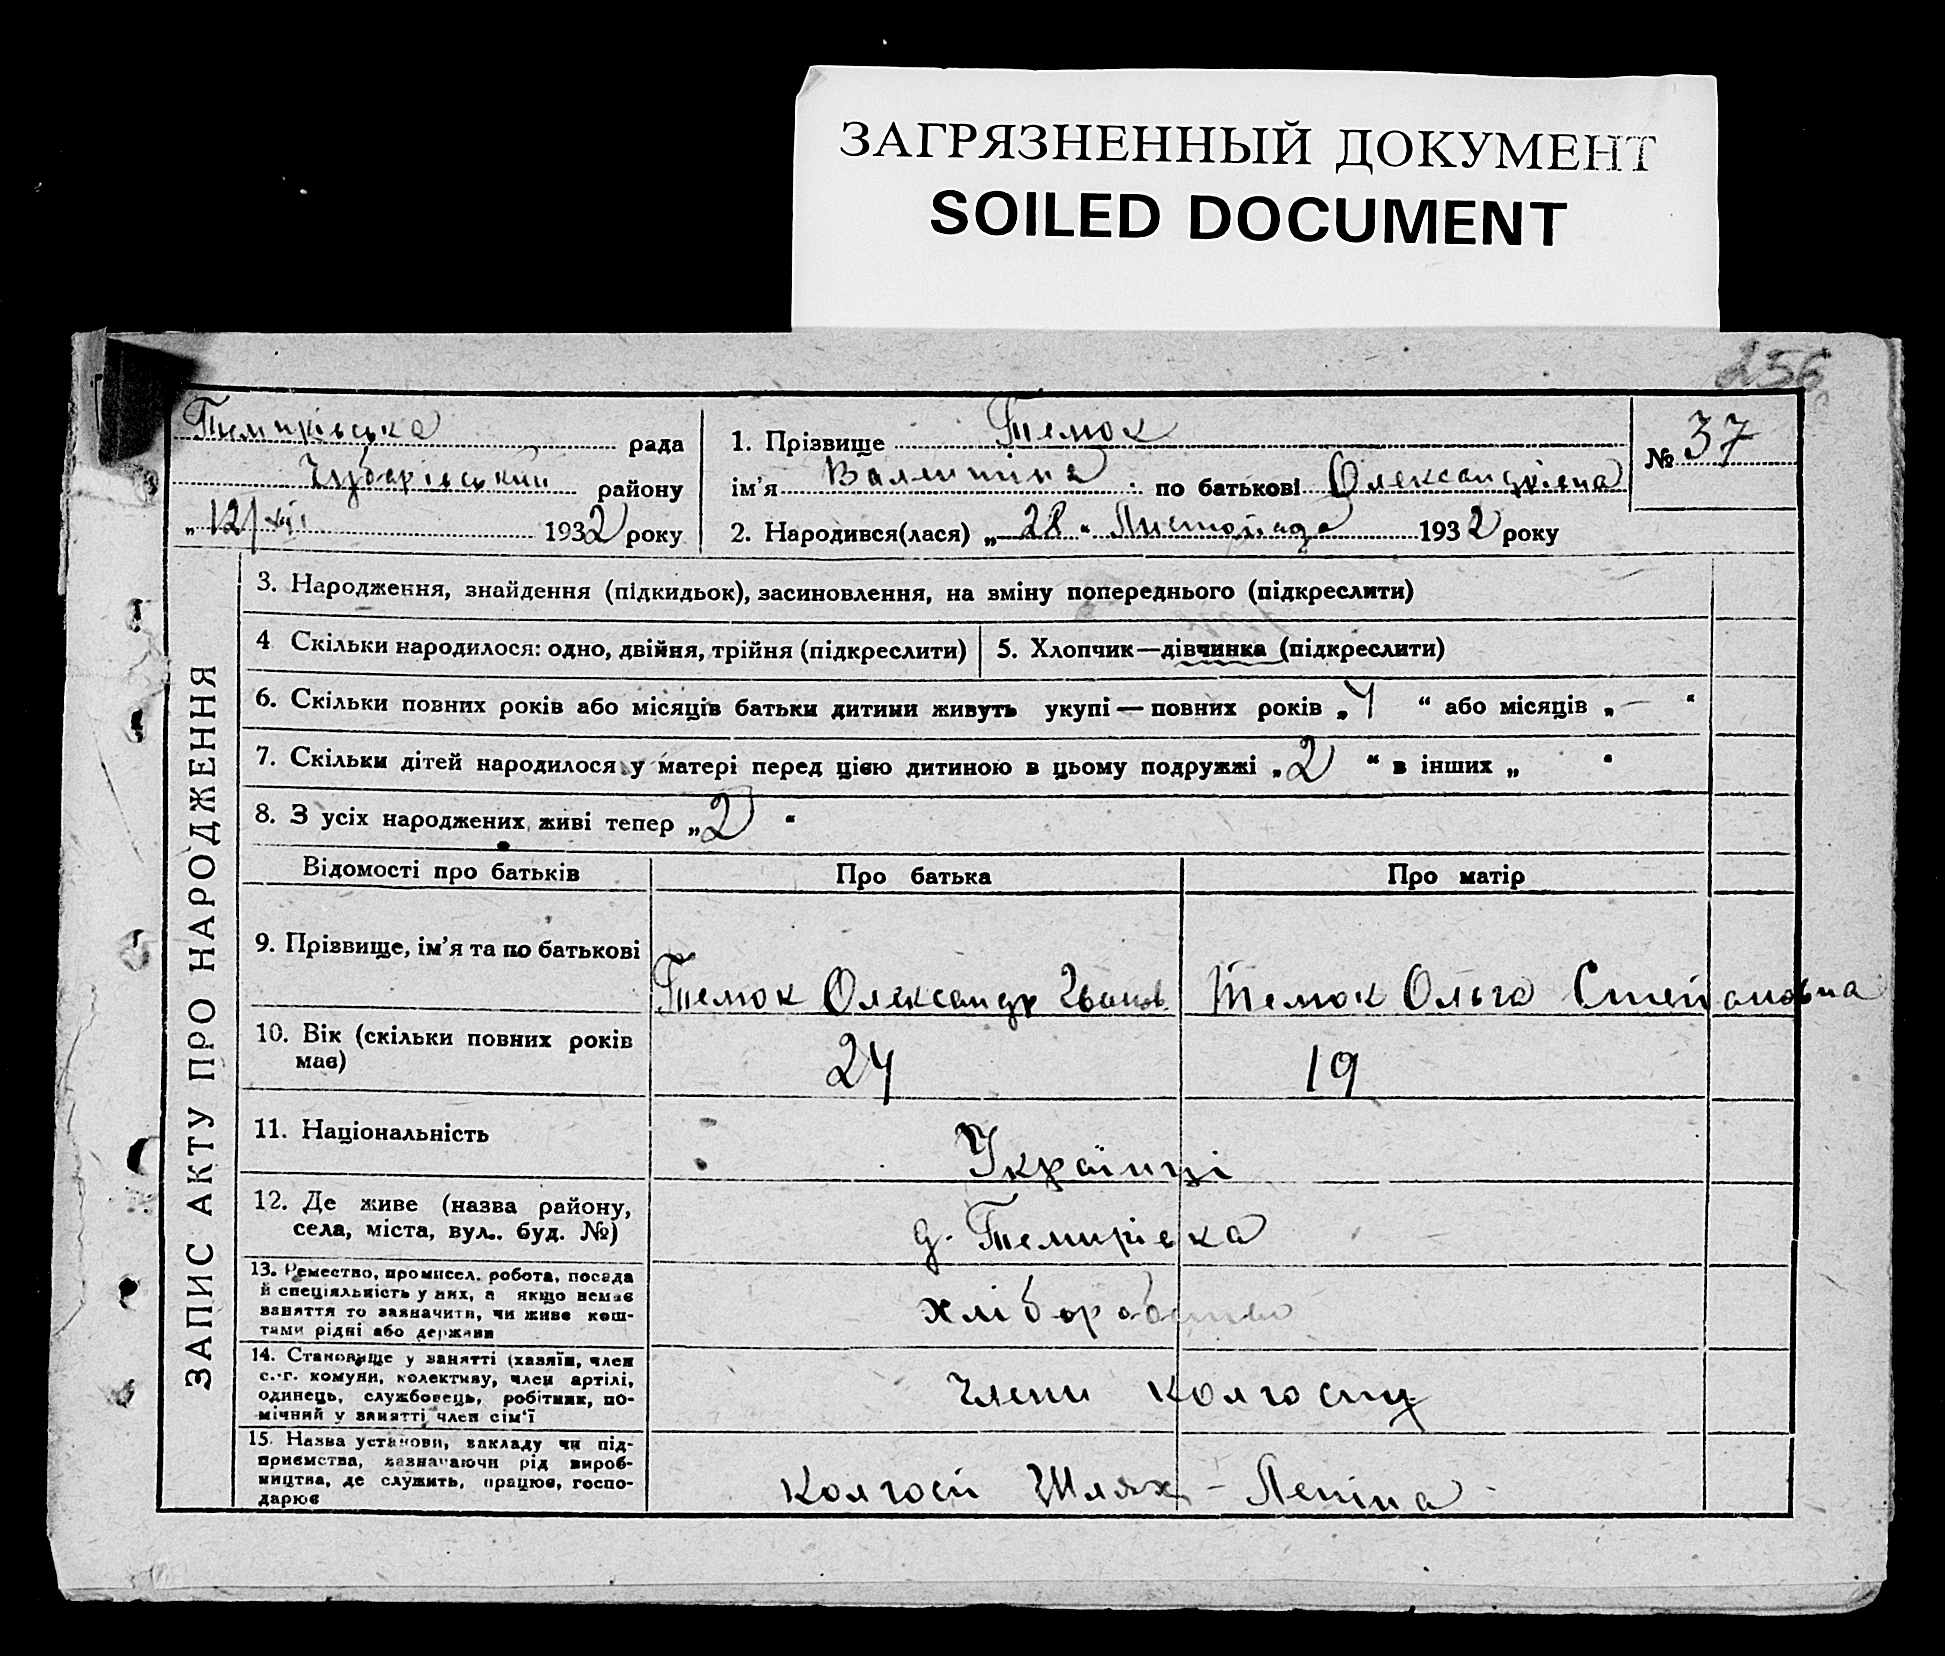 ЗАГРЯЗНЕННЫЙ ДОКУМЕНТ
SOILED DOCUMENT
256
Темирівська рада
Чубарівський району
„12/XII 1932 року
1. Прізвище Темох
ім’я Валентина по батькові Олександрівна
2. Народився(лася) „28“ Листопада 1932 року
№ 37
ЗАПИС АКТУ ПРО НАРОДЖЕННЯ
3. Народження, знайдення (підкидьок), засиновлення, на зміну попереднього (підкреслити)
4 Скільки народилося: одно, двійня, трійня (підкреслити)
5. Хлопчик—дівчинка (підкреслити)
6. Скільки повних років або місяців батьки дитини живуть укупі — повних років „4“ або місяців „—“
7. Скільки дітей народилося у матері перед цією дитиною в цьому подружжі „2“ в інших „ “
8. З усіх народжених живі тепер „2“
Відомості про батьків Про батька Про матір
9. Прізвище, ім’я та по батькові
Темох Олександр Іванов Темох Ольга Степановна
10. Вік (скільки повних років
має)
24 19
11. Національність
Українці
12. Де живе (назва району,
села, міста, вул.. буд. №)
д. Темирівка
13. Ремество, промисел. робота, посада
й спеціяльність у них, а якщо немає
заняття то зазначити, чи живе кош-
тами рідні або держави
хліборобство
14. Становище у занятті (хазяїн, член
с.-г. комуни, колективу, член артілі,
одинець, службовець, робітник, по-
мічний у занятті член сім’ї
Члени колгоспу
15. Назва установи, закладу чи під-
приємства, зазначаючи рід вироб-
ництва, де служить, працює, госпо-
дарює
Колгосп Шлях - Леніна